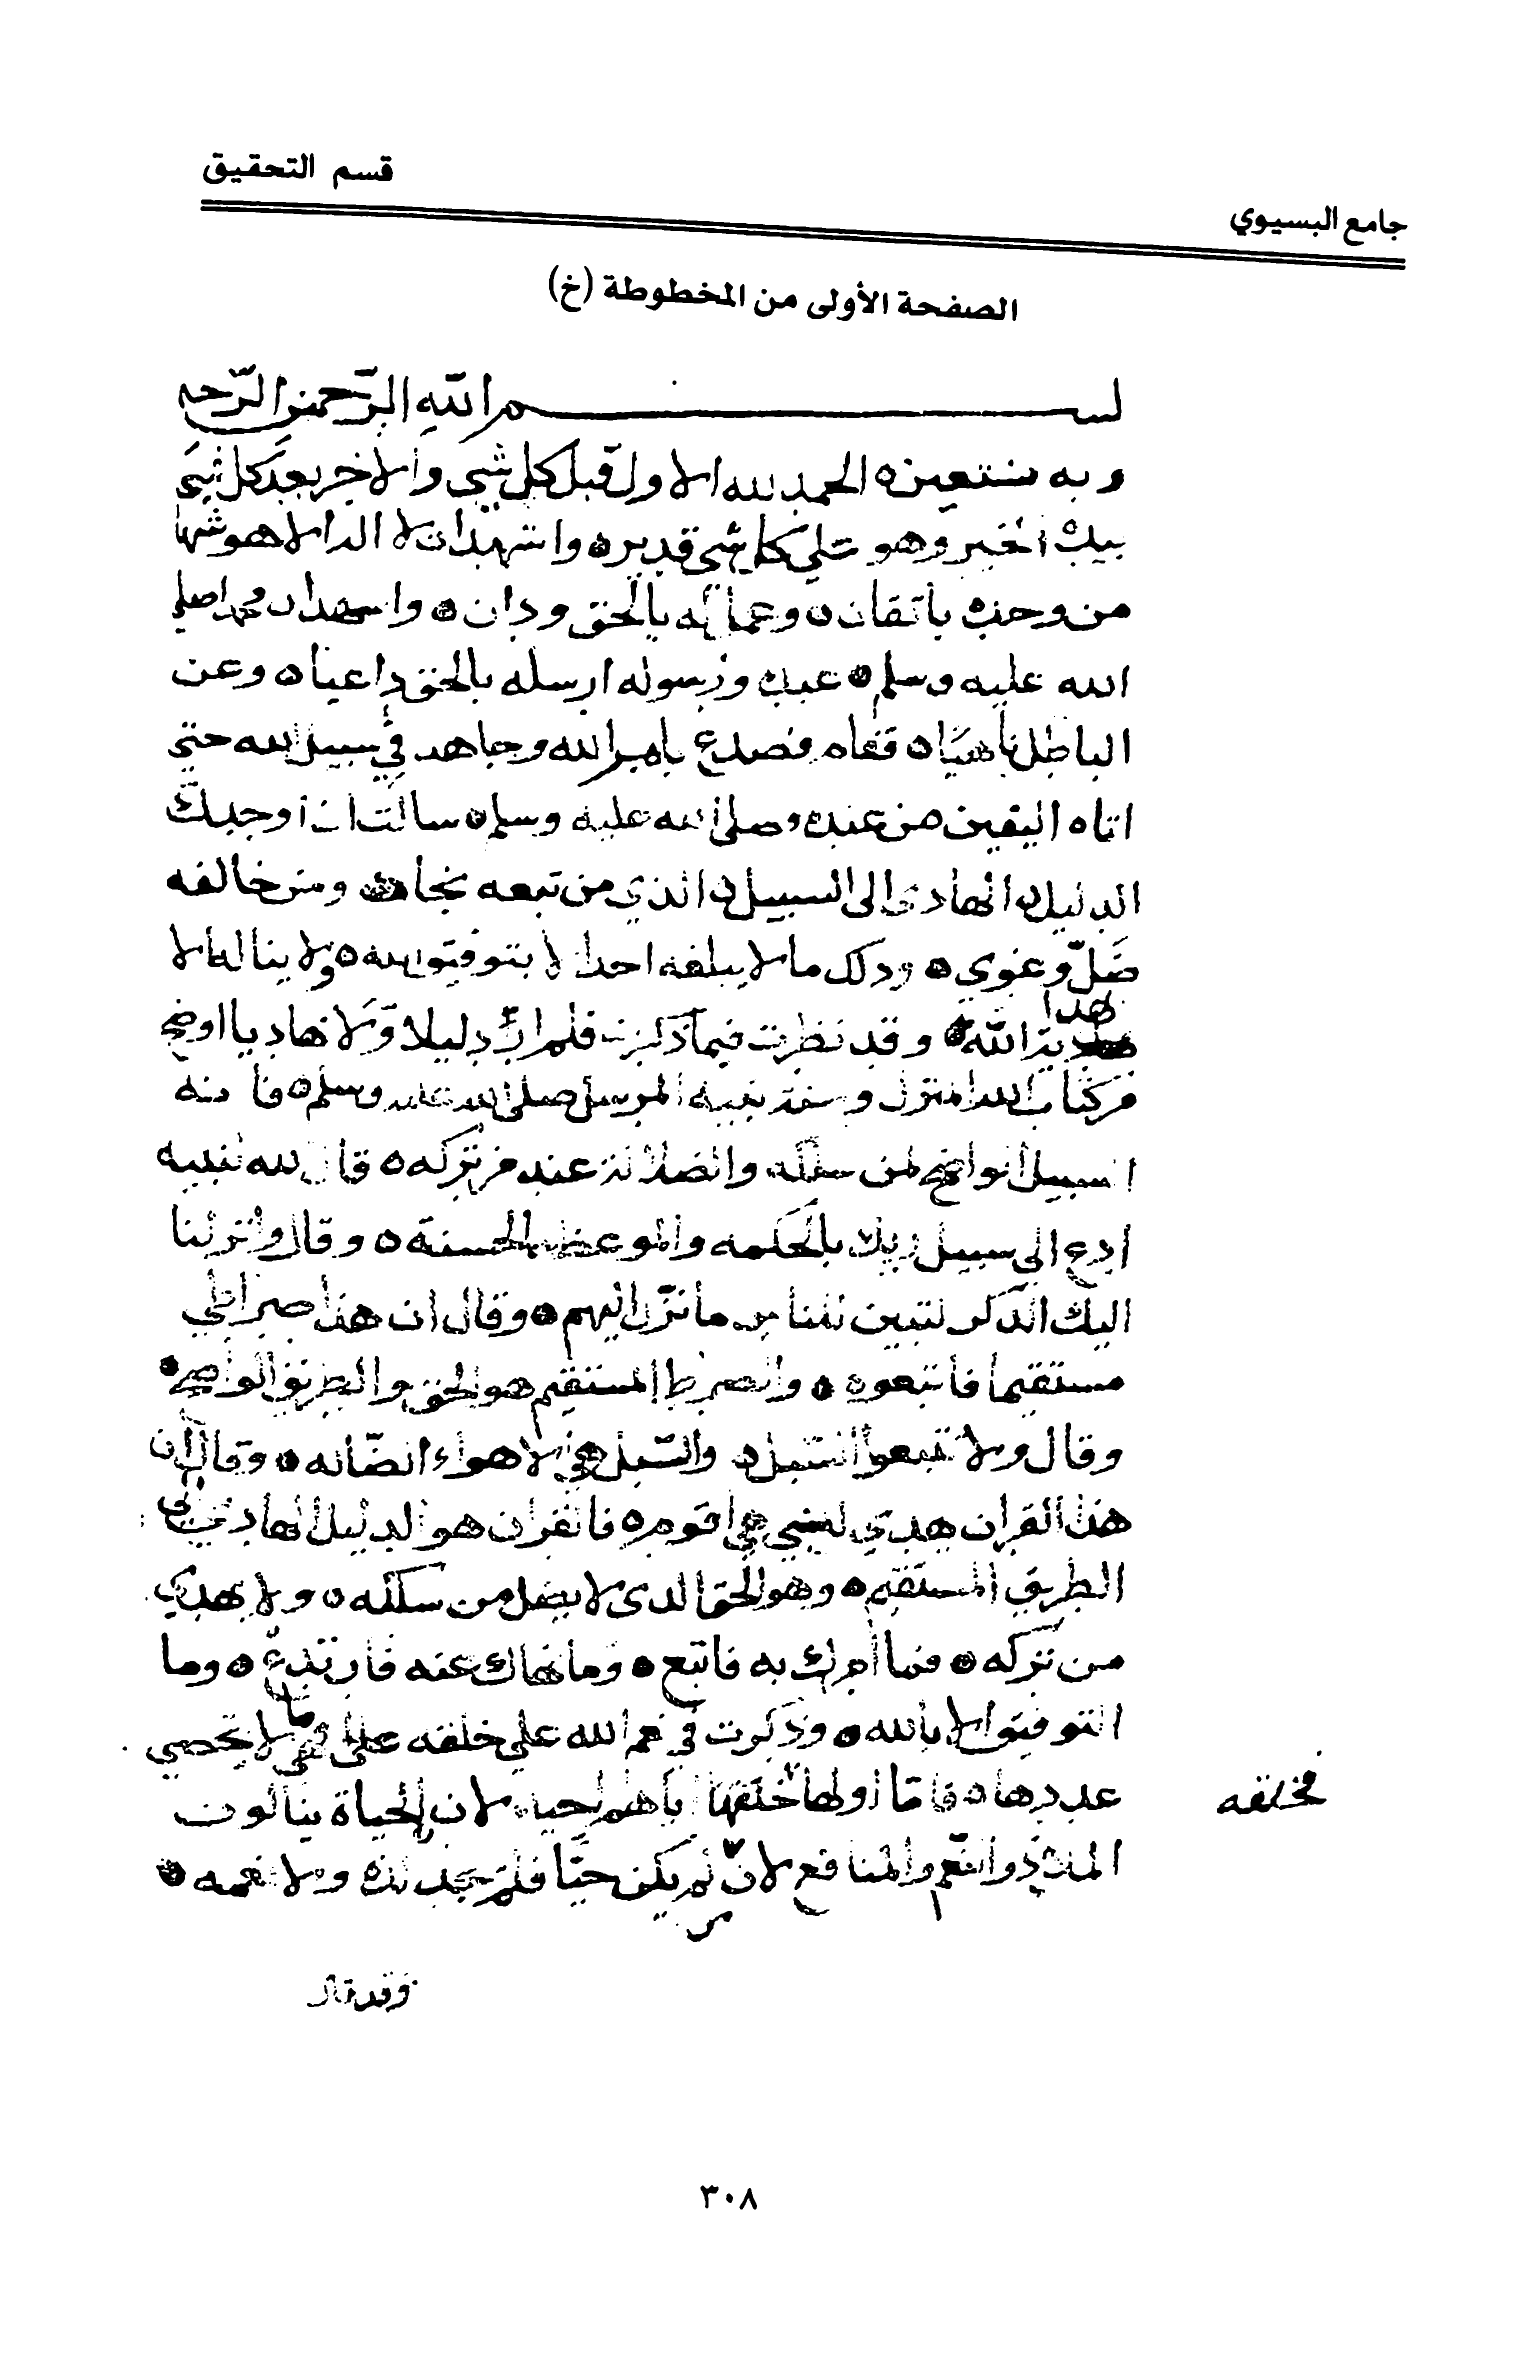 قسم التحقيق
جامع البسيوي
الصفحة الأولى من المخطوطة (خ)
بسم الله الرحمن الرحيم
وبه نستعين ه الحمد لله الاول قبل كل شيء والاخر بعد كل شيء
بيده الخير وهو على كل شي قدير ه واشهد ان لا اله الا هو شهادة
من وحده باتقان ه وعمل له بالحق ودان ه واشهد ان محمدا صلى
الله عليه وسلم ه عبده ورسوله ارسله بالحق داعيا ه وعن
الباطل ناهيا ه فصدع بامر الله وجاهد في سبيل الله حتى
اتاه اليقين من عنده وصلى الله عليه وسلم ه سالت ان اوجدك
الدليل ه الهادي الى السبيل ه الذي من تبعه نجا ه ومن خالفه
ضلّ وغوي ه وذلك ما لا يبلغه احد الا بتوفيق الله ه ولا يناله الا
بهداية الله ه وقد نظرت فيما ذكرت فلم ار دليلا ولا هاديا اوضح
من كتاب الله المنزل وسنة نبيه المرسل صلى الله عليه وسلم ه فانه
السبيل الواضح لمن سلكه والضلالة عند من تركه ه قال الله لنبيه
ادع الى سبيل ربك بالحكمه والموعظه الحسنة ه وقال وانزلنا
اليك الذكر لتبين للناس ما نزّل اليهم ه وقال ان هذا صراطي
مستقيما فاتبعوه ه والصراط المستقيم هو الحق والطريق الواضح ه
وقال ولا تتبعوا السبل ه والسّبل هي الاهواء الضّاله ه وقال ان
هذا القران يهدي للتي هي اقوم ه فالقران هو الدليل الهادي الى
الطريق المستقيم ه وهو الحق الذى لا يضل من سلكه ه ولا يهدي
من تركه ه فما امرك به فاتبع ه وما نهاك عنه فارتدع ه وما
التوفيق الا بالله ه وذكرت في نعم الله على خلقه على ما لا يحصي
عددها ه فامّا اولها خلقهم احياء لان بالحياة ينالون
فخلقه
الملاذ والنّعم والمنافع لانّ من لم يكن حيّا فلم يجد لذه ولا نعمه ه
وقد قال
٣٠٨